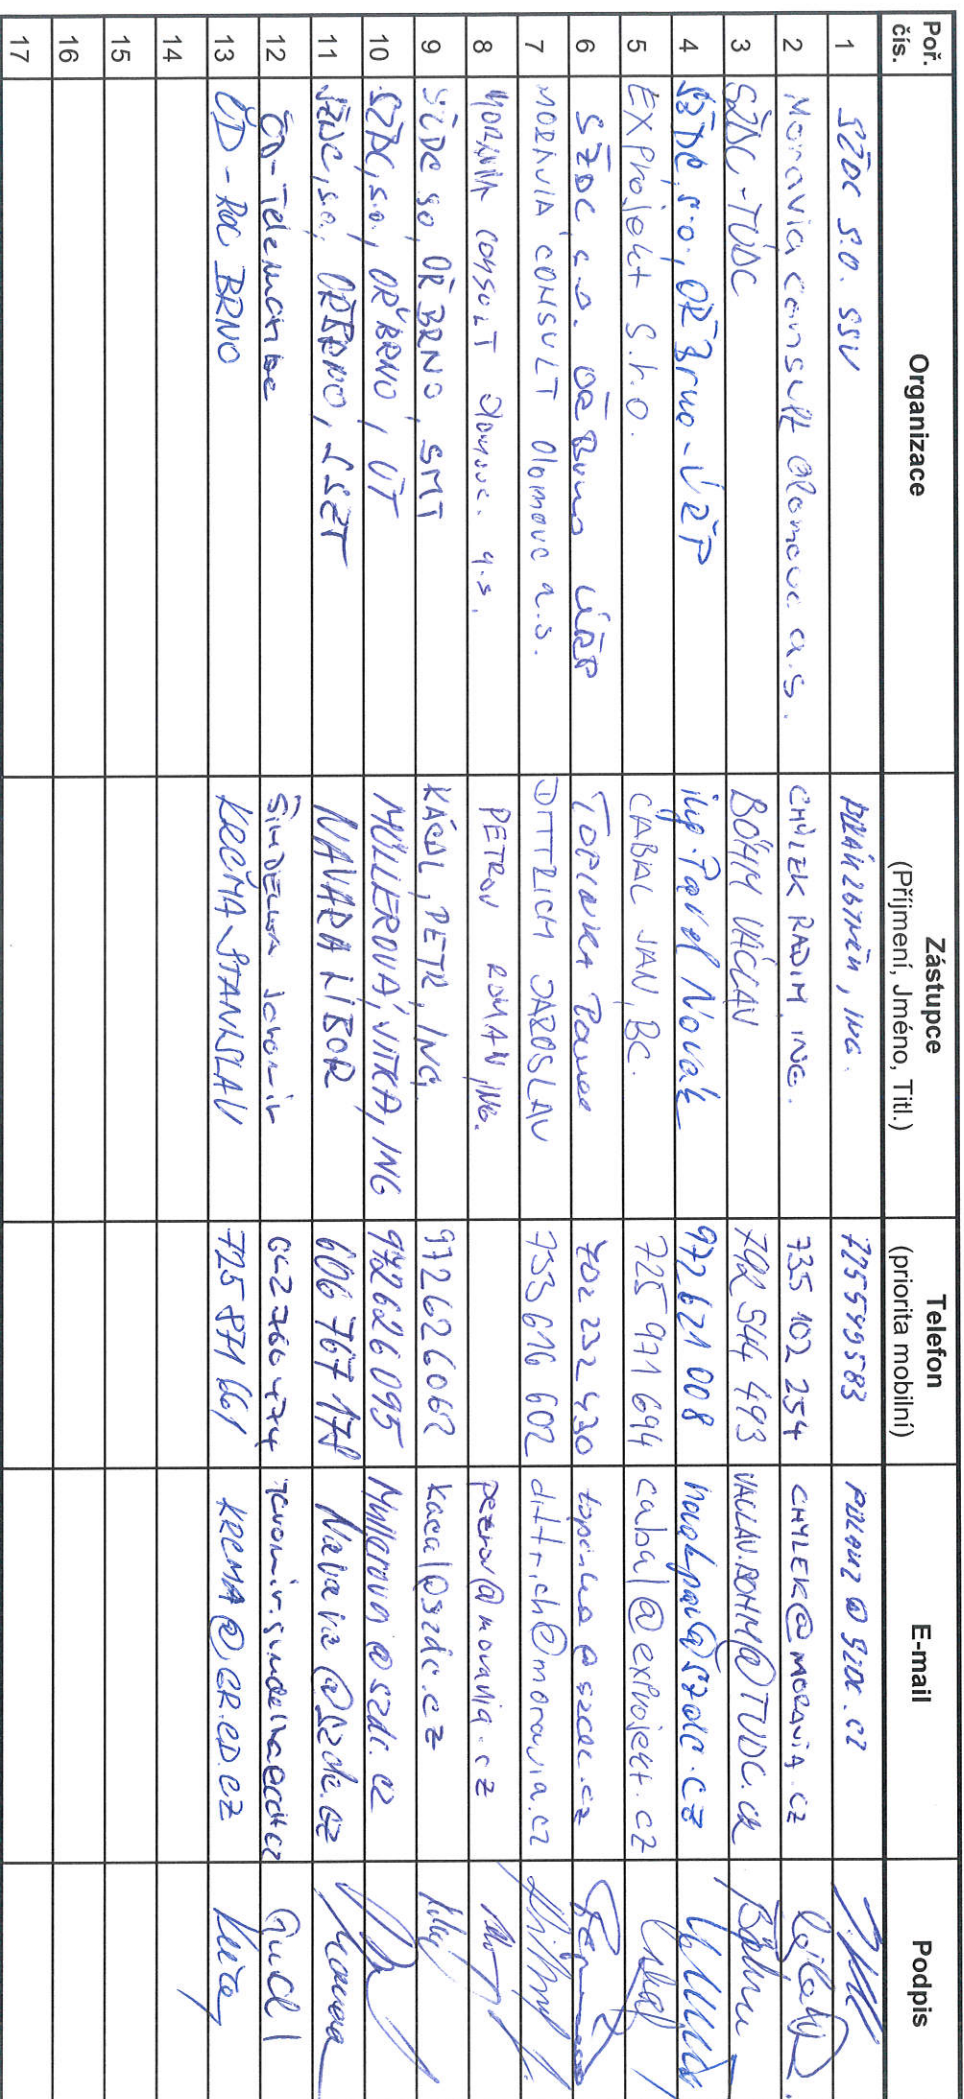 Poř. čís. Organizace Zástupce (Příjmení, Jméno, Titl.) Telefon (priorita mobilní) E-mail Podpis
1 SŽDC s.o. SSV , ING. 725599583
2 Moravia Consult Olomouc a.s. CHÝLEK RADIM, ING. 735 102 254 CHYLEK@MORAVIA.CZ
3 SŽDC-TÚDC BÖHM VÁCLAV 702 544 493 VACLAV.BOHM@TUDC.CZ
4 SŽDC, s.o., OŘ Brno-ÚŘP ing. Pavel Novák 972 621 008 novakpav@szdc.cz
5 EXprojekt s.r.o. CABAL JAN, BC. 725 971 694 cabal@exprojekt.cz
6 SŽDC, s.o. OŘ Brno ÚŘP TOPINKA 702 232 430 topinka@szdc.cz
7 MORAVIA CONSULT Olomouc a.s. DITTRICH JAROSLAV 733 616 602 dittrich@moravia.cz
8 MORAVIA CONSULT Olomouc a.s. PETROV ROMAN, ING. petrov@moravia.cz
9 SŽDC so, OŘ BRNO, SMT KÁCAL, PETR, ING. 972626062 kacal@szdc.cz
10 SŽDC, s.o., OŘ BRNO, ÚT MÜLLEROVÁ, VITKA, ING 972626095 Mullerova@szdc.cz
11 SŽDC, s.o., OŘ BRNO, SSZT NAVARA LIBOR 606 767 178 Navara@szdc.cz
12 ČD-Telematika Jaromír
13 ČD - ROC BRNO KRČMA STANISLAV 725 871 661 KRCMA@GR.CD.CZ
14
15
16
17